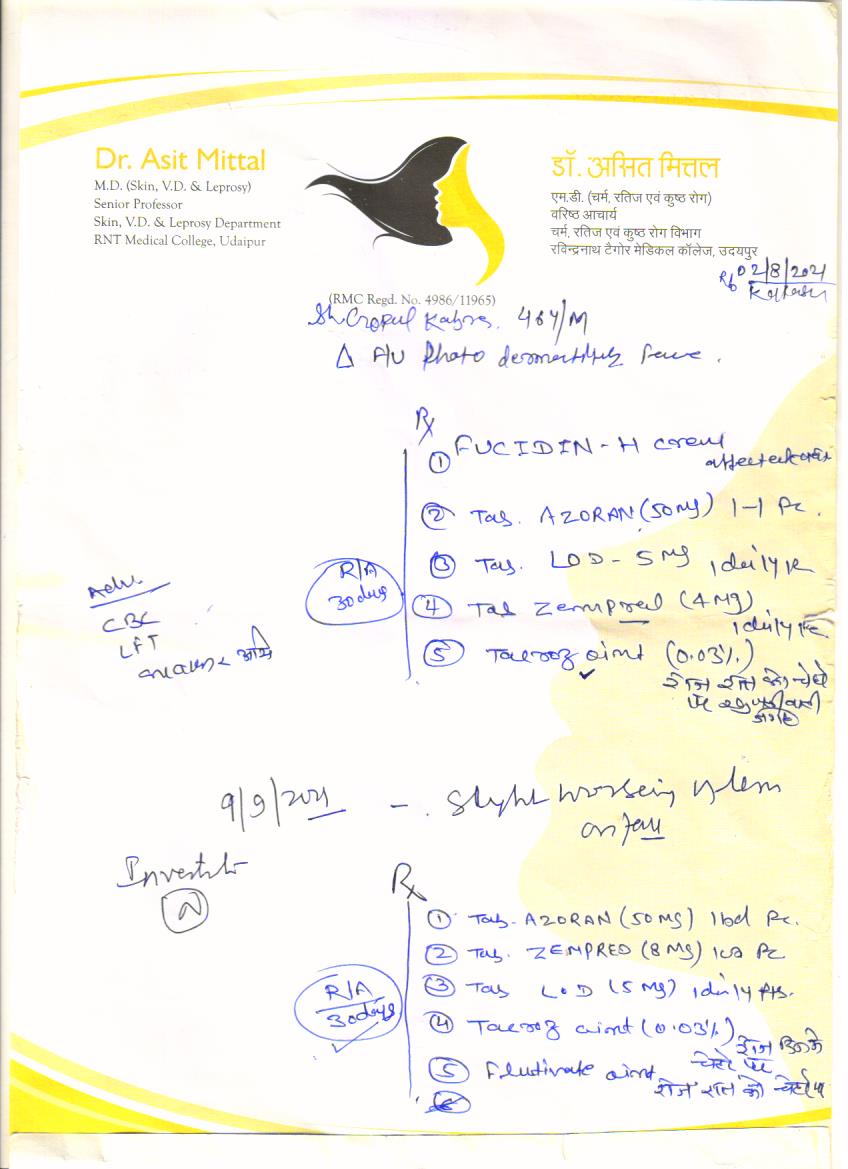 Dr. Asit Mittal
M.D. (Skin, V.D. & Leprosy)
Senior Professor
Skin, V.D. & Leprosy Department
RNT Medical College, Udaipur
डॉ. असित मित्तल
एम.डी. (चर्म, रतिज एवं कुष्ठ रोग)
वरिष्ठ आचार्य
चर्म, रतिज एवं कुष्ठ रोग विभाग
रविन्द्रनाथ टैगोर मेडिकल कॉलेज, उदयपुर
02/8/2021
(RMC Regd. No. 4986/11965)
46y/M
Δ Photo dermatitis face.
Rx
① FUCIDIN-H cream
② Tab. AZORAN (50 mg) 1-1 Pc.
③ Tab. LOD-5 mg 1 daily
R/A
30 days
④ Tab Zempred (4 Mg)
1 daily
Adv.
CBC
LFT
⑤ Tacroz oint (0.03%)
रोज रात को चेहरे
पर
9/9/2021 - Slight worsening
on face
N
Rx
① Tab. AZORAN (50 mg) 1bd Pc.
② Tab. ZEMPRED (8 Mg) Pc
③ Tab LOD (5 mg) 1 daily
R/A
30 days
④ Tacroz oint (0.03%) रोज
चेहरे पर
⑤ Flutivate oint रोज रात को चेहरे पर